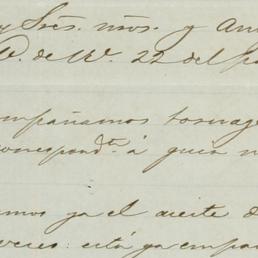 y Sres. mos. y Am
P. de Vs. 22 del pa
mpañamos
correspondte. á quien n
mos ya el aceite d
veces: está ya empa